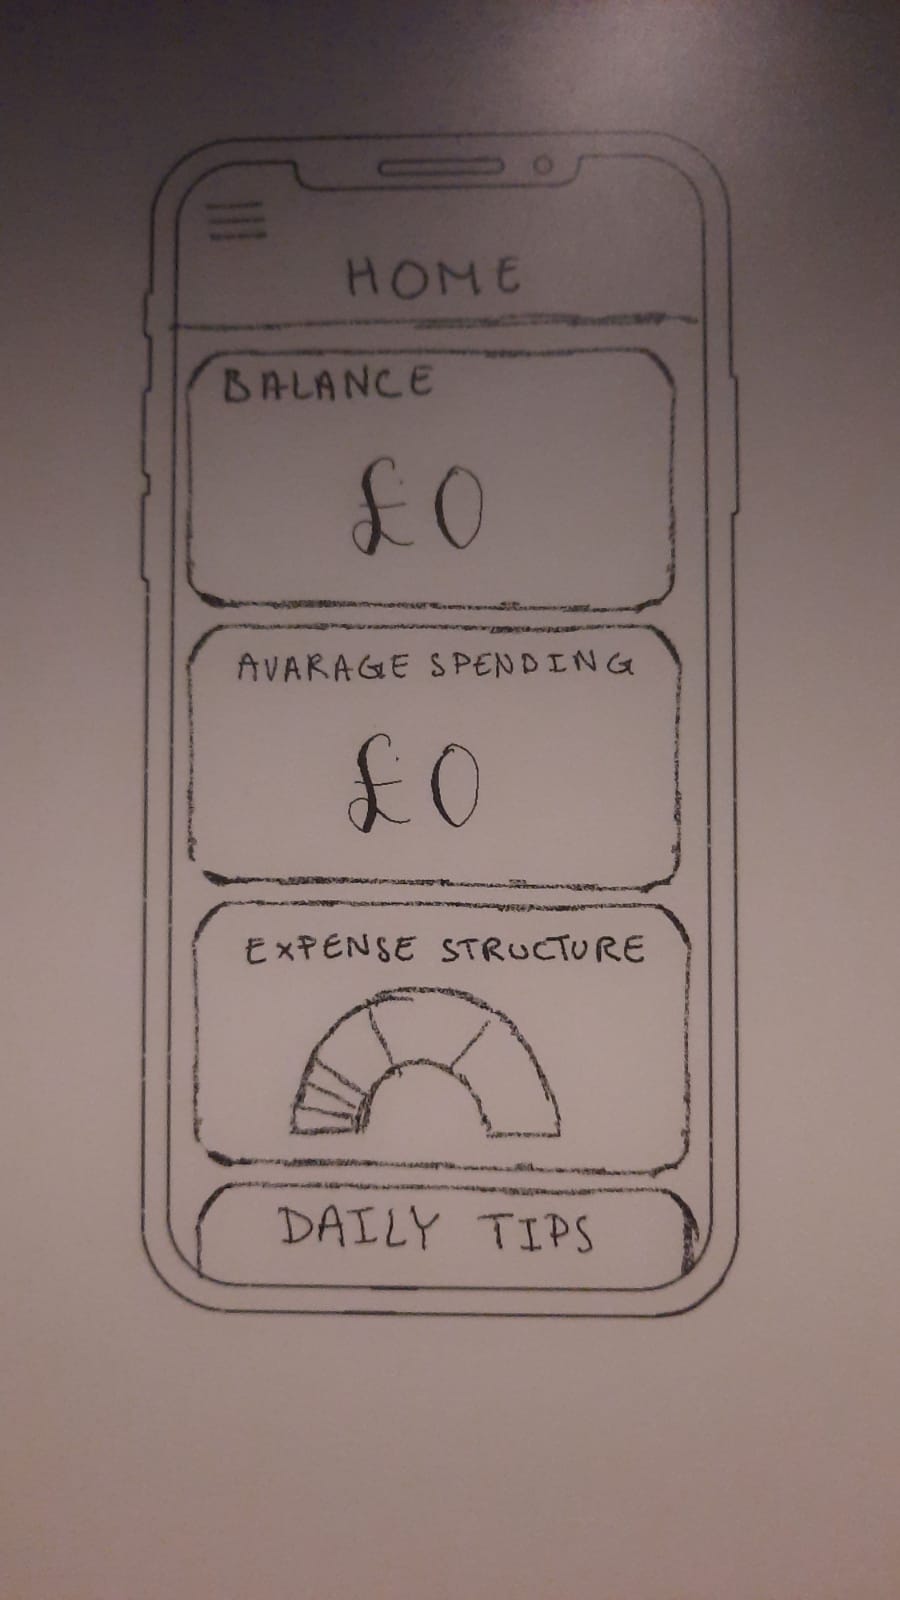 HOME
BALANCE
£0
AVARAGE SPENDING
£0
EXPENSE STRUCTURE
DAILY TIPS